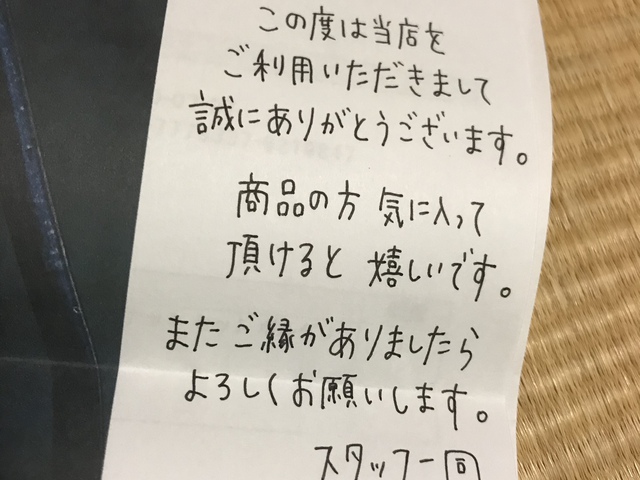 この度は当店を
ご利用いただきまして
誠にありがとうございます。
商品の方 気に入って
頂けると 嬉しいです。
またご縁がありましたら
よろしくお願いします。
スタッフ一同